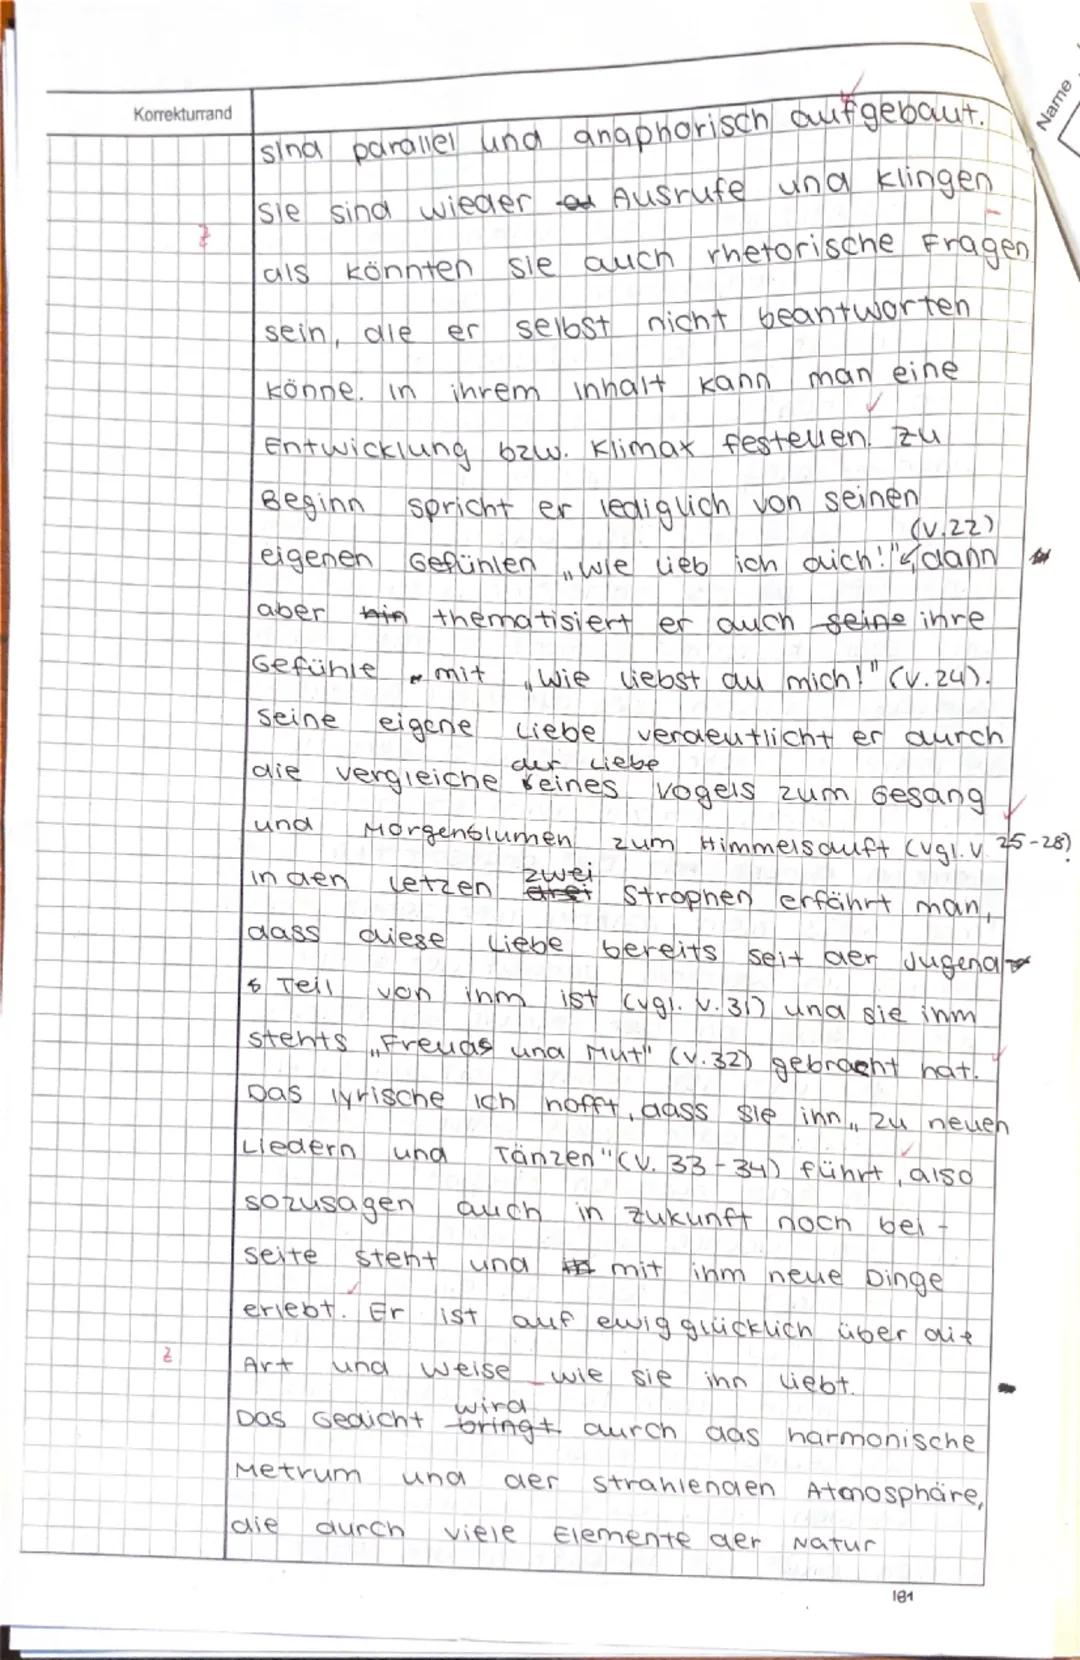 Korrekturrand
Name
sind parallel und anaphorisch aufgebaut.
Sie sind wieder Ausrufe und klingen
als könnten sie auch rhetorische Fragen
sein, die er selbst nicht beantworten
könne. In ihrem Inhalt kann man eine
Entwicklung bzw. Klimax festellen. Zu
Beginn spricht er lediglich von seinen
(V.22)
eigenen Gefühlen „Wie lieb ich dich!" dann
aber hin thematisiert er auch seine ihre
Gefühle mit „Wie liebst du mich!" (V.24).
Seine eigene Liebe verdeutlicht er durch
der Liebe
die Vergleiche eines Vogels zum Gesang
und Morgenblumen zum Himmelsduft (vgl. V. 25-28)
zwei
In den letzen drei Strophen erfährt man,
dass diese Liebe bereits seit der Jugend
Teil von ihm ist (vgl. V.31) und sie ihm
stehts „Freuds und Mut" (V.32) gebracht hat.
Das lyrische Ich hofft, dass sie ihn „zu neuen
Liedern und Tänzen" (V. 33-34) führt, also
sozusagen auch in Zukunft noch bei-
seite steht und mit ihm neue Dinge
erlebt. Er ist auf ewig glücklich über die
Art und Weise wie sie ihn liebt.
wird
Das Gedicht bringt durch das harmonische
Metrum und der strahlenden Atmosphäre,
die durch viele Elemente der Natur
181